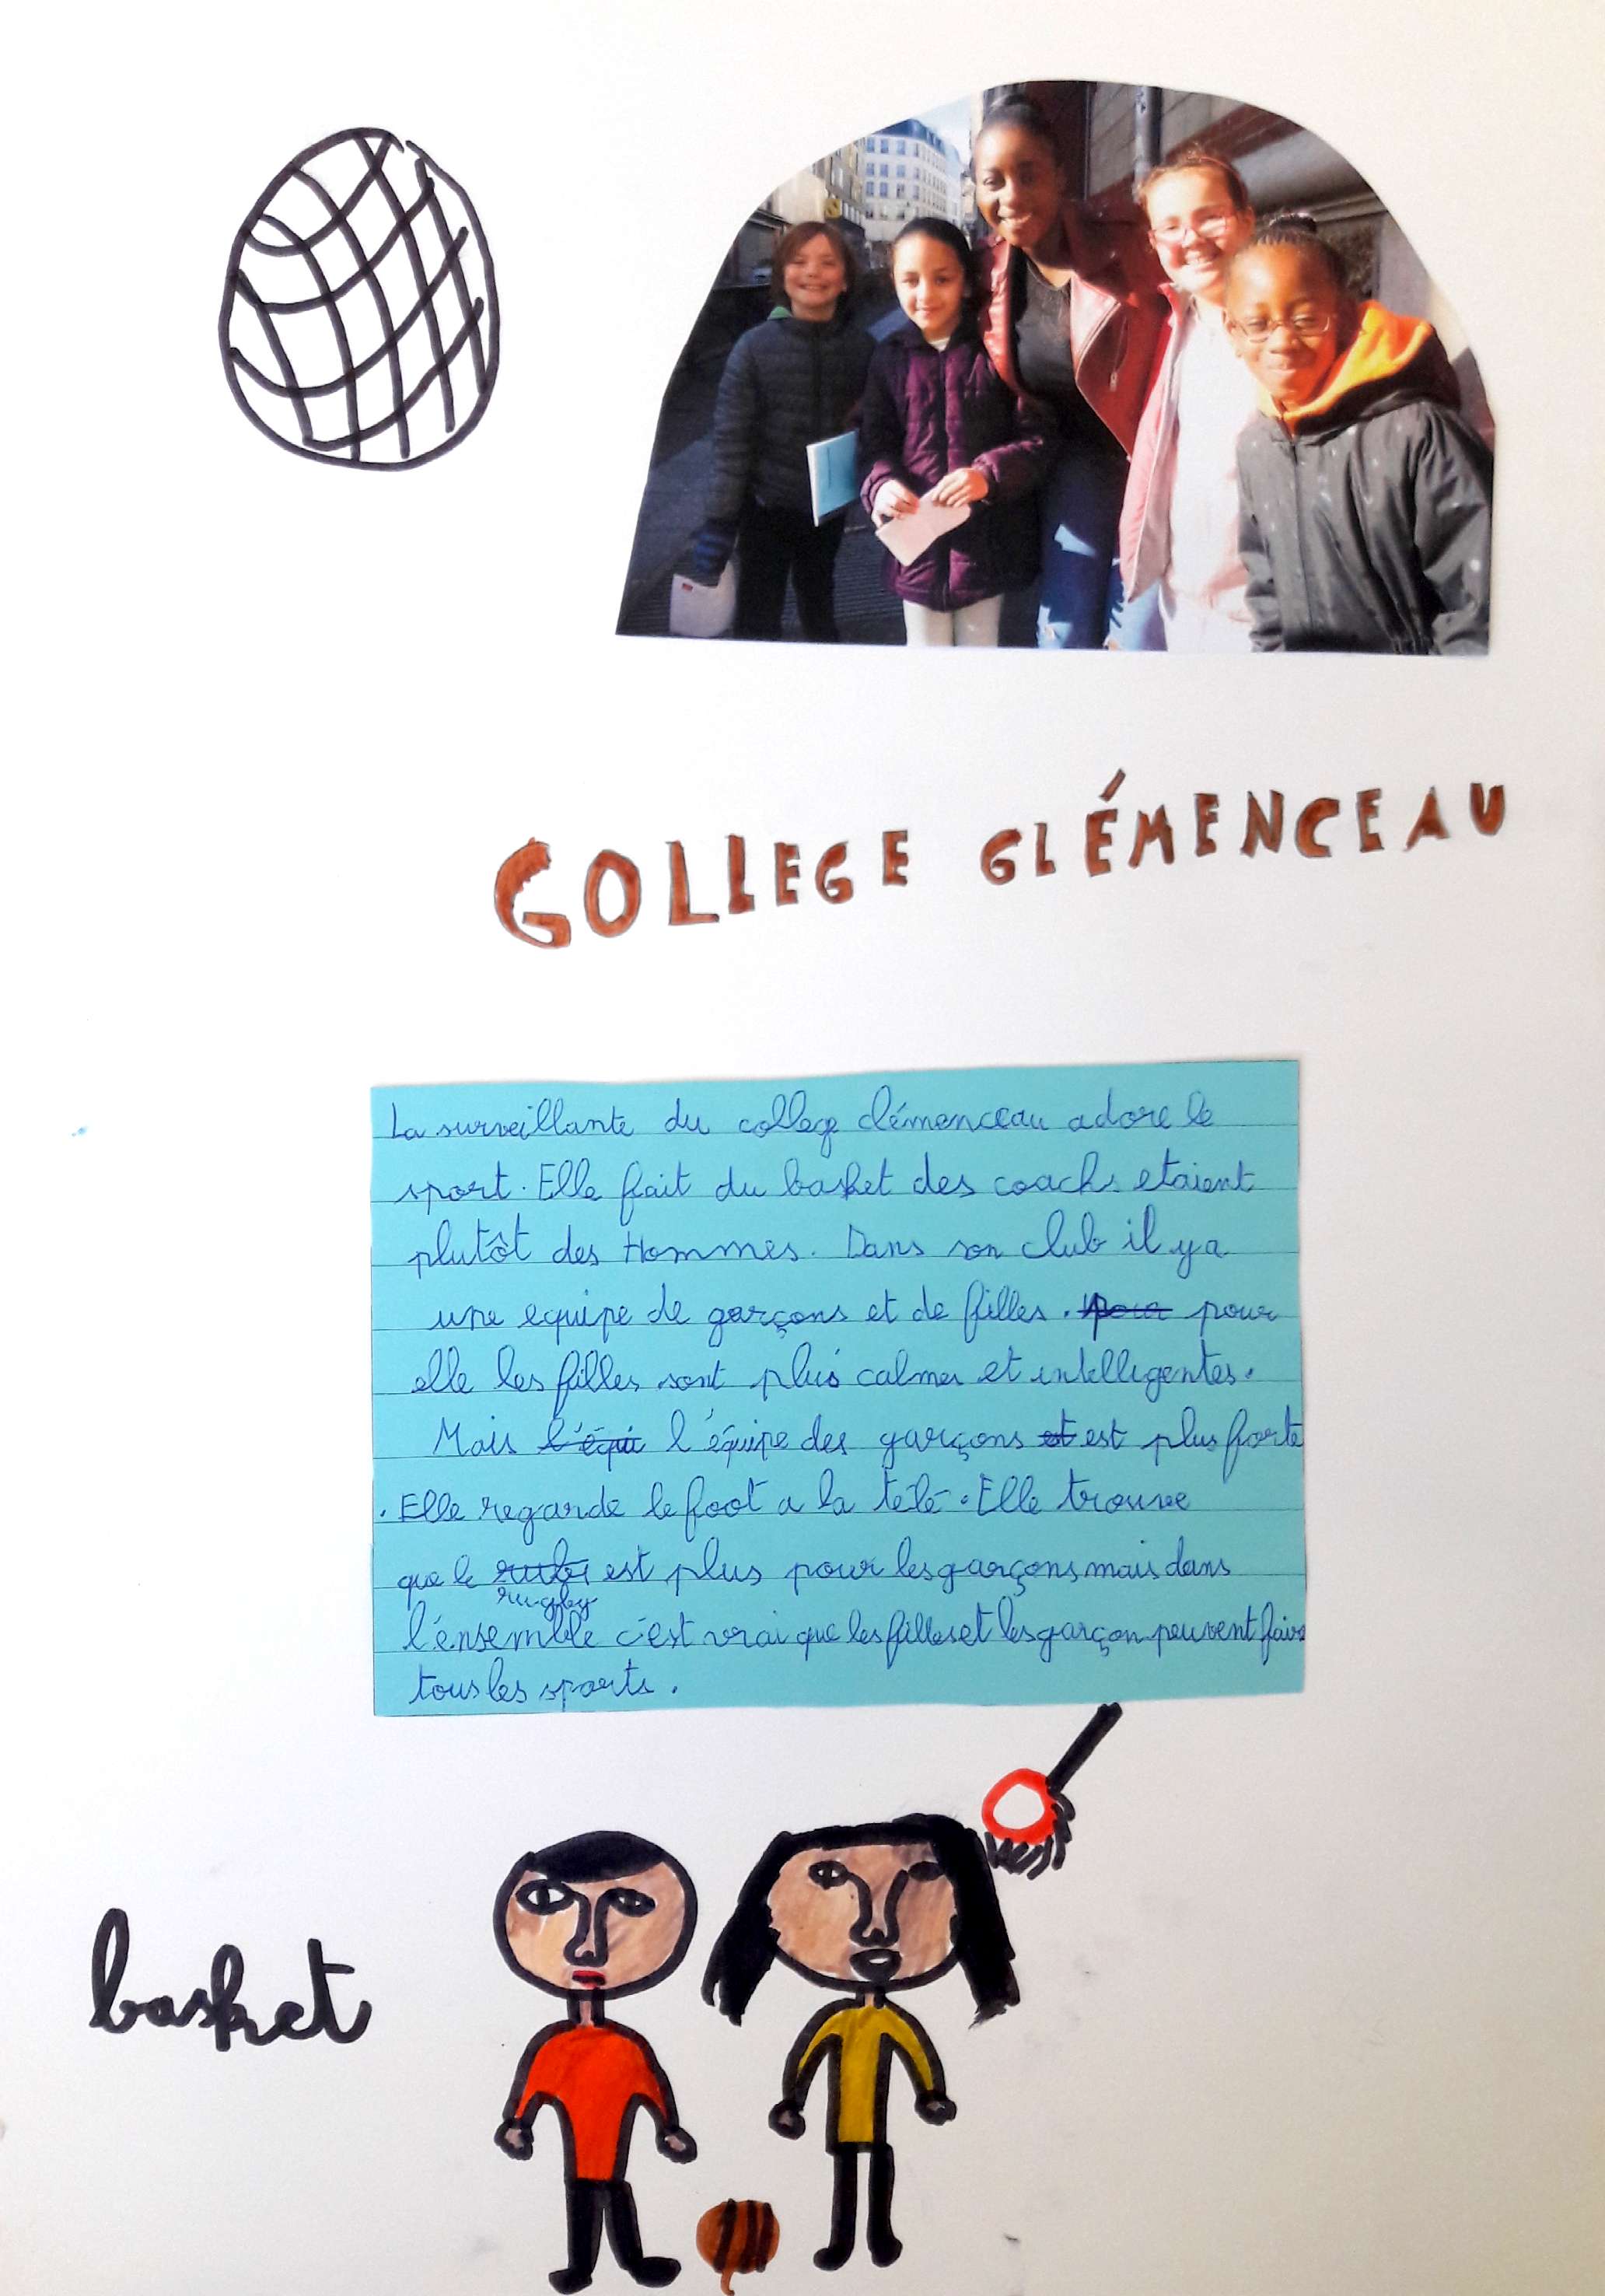 COLLEGE CLÉMENCEAU
La surveillante du college clémenceau adore le
sport. Elle fait du basket des coachs etaient
plutôt des Hommes. Dans son club il y a
une equipe de garçons et de filles. pour pour
elle les filles sont plus calmes et intelligentes.
Mais l'équi l'équipe des garçons et est plus forte
. Elle regarde le foot a la télé. Elle trouve
que le est plus pour les garçons mais dans
rugby
l'énsemble c'est vrai que les filles et les garçon peuvent faire
tous les sports.
basket